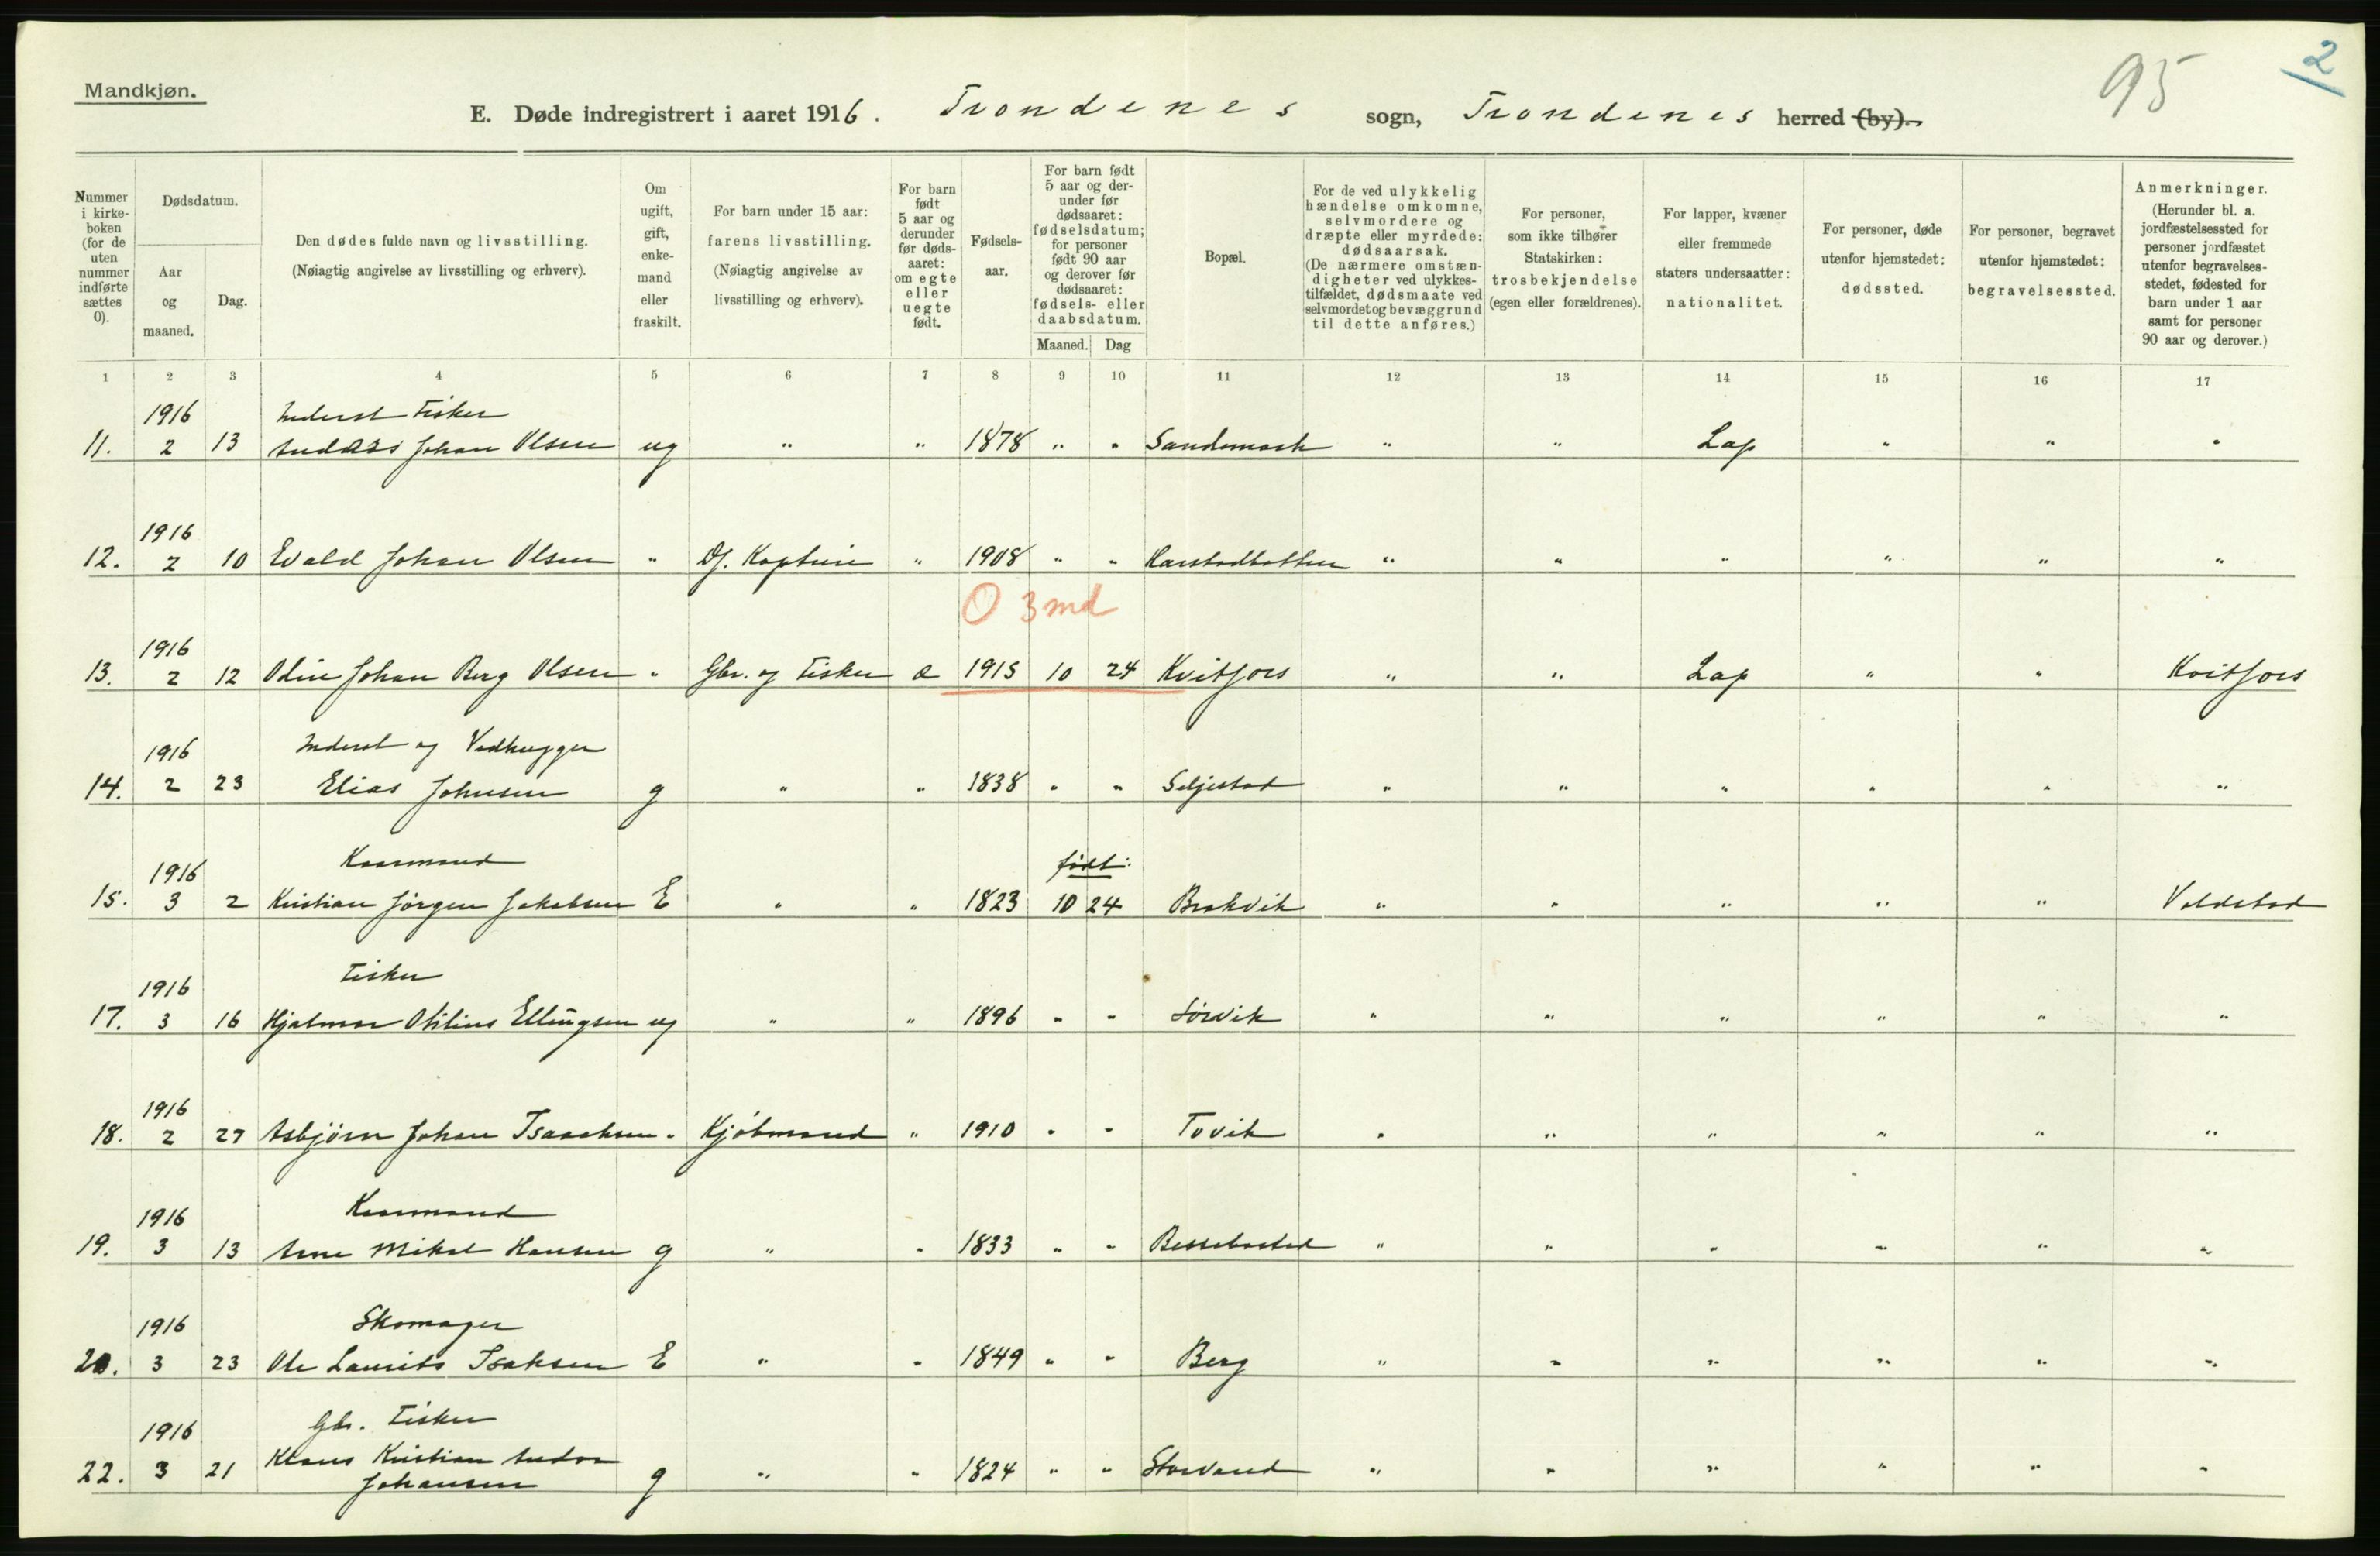 95
2
Mandkjøn.
E. Døde indregistrert i aaret 1916. Trondenes sogn, Trondenes herred (by).
Nummer i kirke- boken (for de uten nummer indførte sættes 0).
Dødsdatum.
Aar og maaned.
Dag.
Den dødes fulde navn og livsstilling.
(Nøiagtig angivelse av livsstilling og erhverv).
Om ugift, gift, enke- mand eller fraskilt.
For barn under 15 aar: farens livsstilling.
(Nøiagtig angivelse av livsstilling og erhverv).
For barn født 5 aar og derunder før døds- aaret: om egte eller uegte født.
Fødsels- aar.
For barn født 5 aar og der- under før dødsaaret: fødselsdatum; for personer født 90 aar og derover før dødsaaret: fødsels- eller daabsdatum.
Maaned. Dag
Bopæl.
For de ved ulykkelig hændelse omkomne, selvmordere og dræpte eller myrdede: dødsaarsak.
(De nærmere omstæn- digheter ved ulykkes- tilfældet, dødsmaate ved selvmordet og bevæggrund til dette anføres.)
For personer, som ikke tilhører Statskirken: trosbekjendelse (egen eller forældrenes).
For lapper, kvæner eller fremmede staters undersaatter: nationalitet.
For personer, døde utenfor hjemstedet: dødssted.
For personer, begravet utenfor hjemstedet: begravelsessted.
Anmerkninger.
(Herunder bl. a. jordfæstelsessted for personer jordfæstet utenfor begravelses- stedet, fødested for barn under 1 aar samt for personer 90 aar og derover.)
1 2 3 4 5 6 7 8 9 10 11 12 13 14 15 16 17
1916 Inderst Fisker
11. 2 13 Andreas Johan Olsen ug " " 1878 " " Sandemark " " Lap " " "
1916
12. 2 10 Evald Johan Olsen " Df. Kaptein " 1908 " " Harstadbotten " " " " " "
O 3 md
1916
13. 2 12 Odin Johan Berg Olsen " Gbr. og Fisker e 1915 10 24 Kvitfors " " Lap " " Kvitfors
1916 Inderst og Vedhugger
14. 2 23 Elias Johnsen g " " 1838 " " Seljestad " " " " " "
1916 Kaarmand født:
15. 3 2 Kristian Jörgen Jakobsen E " " 1823 10 24 Brokvik " " " " " Voldstad
1916 Fisker
17. 3 16 Hjalmar Otilius Ellingsen ug " " 1896 " " Sörvik " " " " " "
1916
18. 2 27 Asbjörn Johan Isaachsen " Kjöbmand " 1910 " " Tovik " " " " " "
1916 Kaarmand
19. 3 13 Arne Mikal Hansen g " " 1833 " " Bessebostad " " " " " "
1916 Skomager
20. 3 23 Ole Laurits Isaksen E " " 1849 " " Berg " " " " " "
1916 Gbr. Fisker
22. 3 21 Klaus Kristian Andor
Johansen g " " 1824 " " Storvand " " " " " "